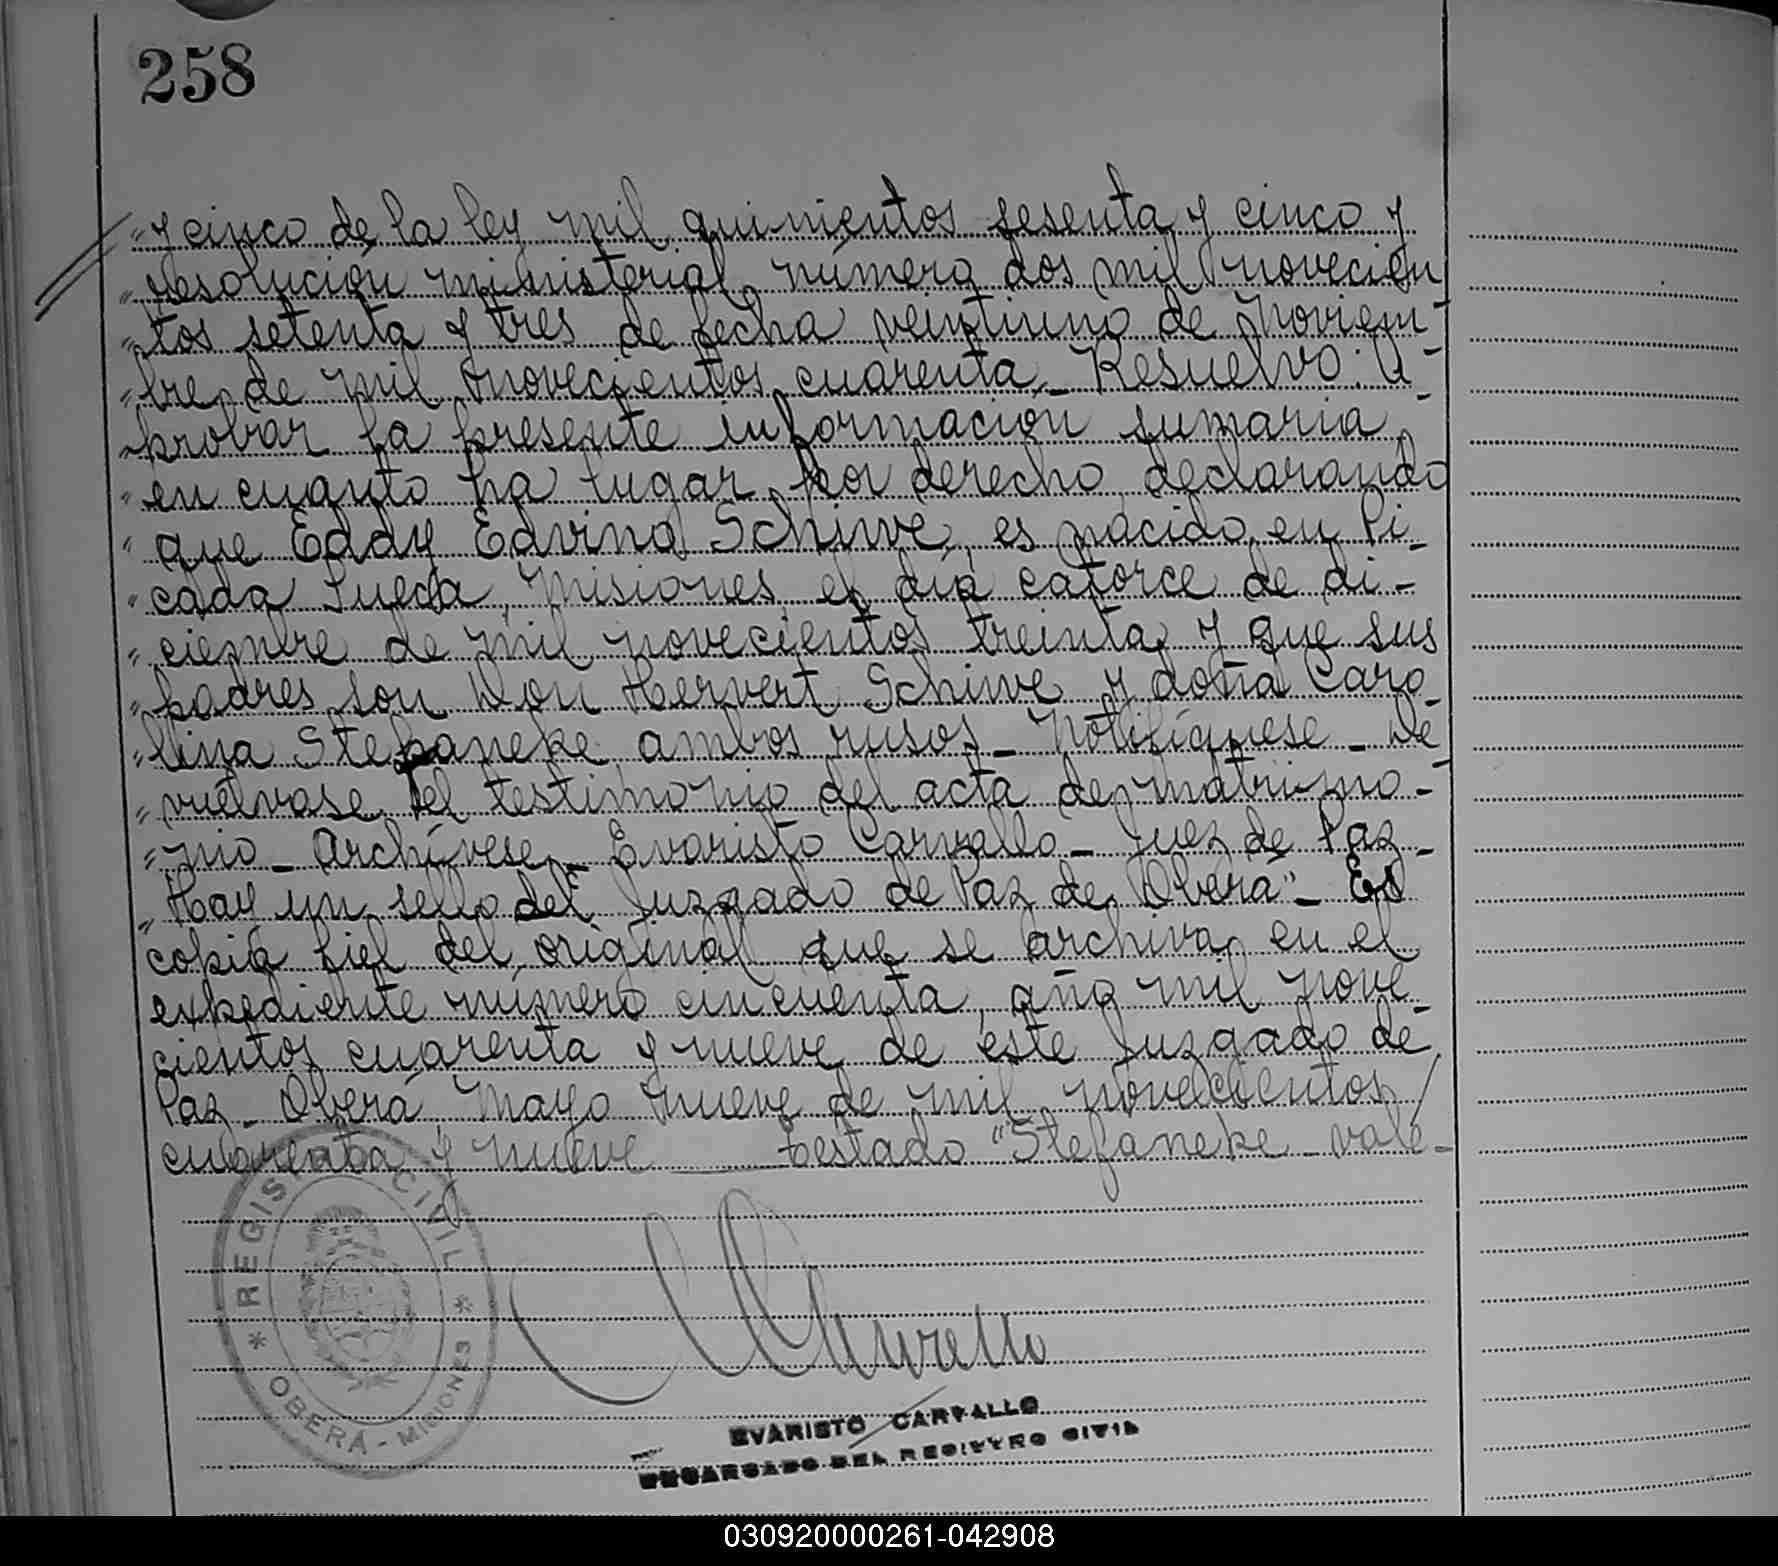 258
"y cinco de la ley mil quinientos sesenta y cinco y
"resolución ministerial número dos mil novecien
"tos setenta y tres de fecha veintiuno de Noviem-
"bre de mil novecientos cuarenta_ Resuelvo: A-
"probar la presente información sumaria,
"en cuanto ha lugar por derecho, declarando
"que Eddy Edvino Schiwe, es nacido en Pi-
"cada Sueca, Misiones, el día catorce de di-
"ciembre de mil novecientos treinta y que sus
"padres son Don Hervert Schiwe y doña Caro-
"lina Stefaneke, ambos rusos_ Notifíquese_ De-
"vuélvase el testimonio del acta de matrimo-
"nio_ Archívese_ Evaristo Carvallo_ Juez de Paz_
"Hay un sello del Juzgado de Paz de Oberá"_ Es
copia fiel del original que se archiva en el
expediente número cincuenta, año mil nove-
cientos cuarenta y nueve de este Juzgado de
Paz_ Oberá, Mayo nueve de mil novecientos/
cuarenta y nueve ___ testado "Stefaneke_ vale_
REGISTRO CIVIL
* OBERÁ - MISIONES *
EVARISTO CARVALLO
ENCARGADO DEL REGISTRO CIVIL
030920000261-042908